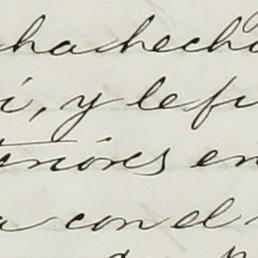 ha hecho
i, y le fu
teriores en
a con el